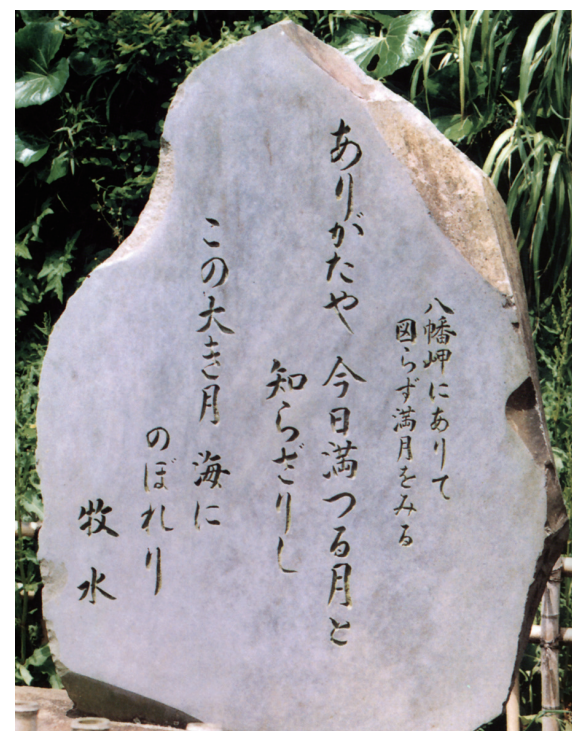 八幡岬にありて
図らず満月をみる
ありがたや 今日満つる月と
知らざりし
この大き月 海に
のぼれり
牧水